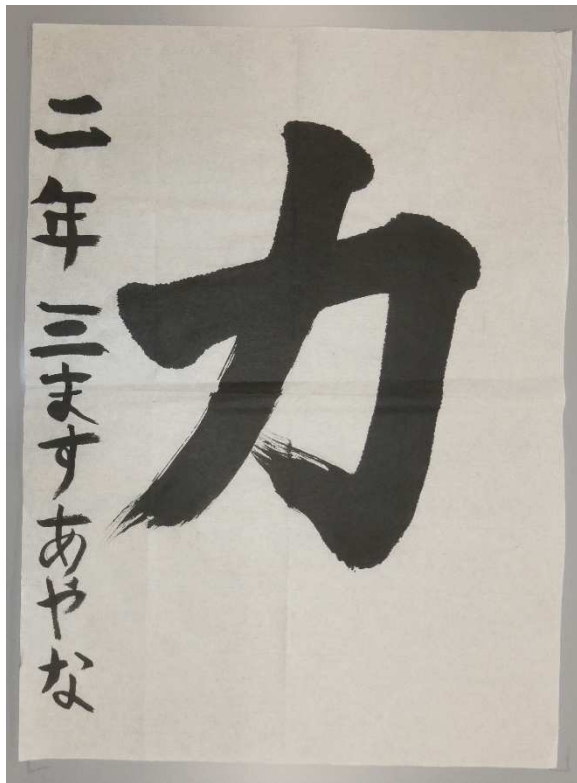 力
二年 三ますあやな